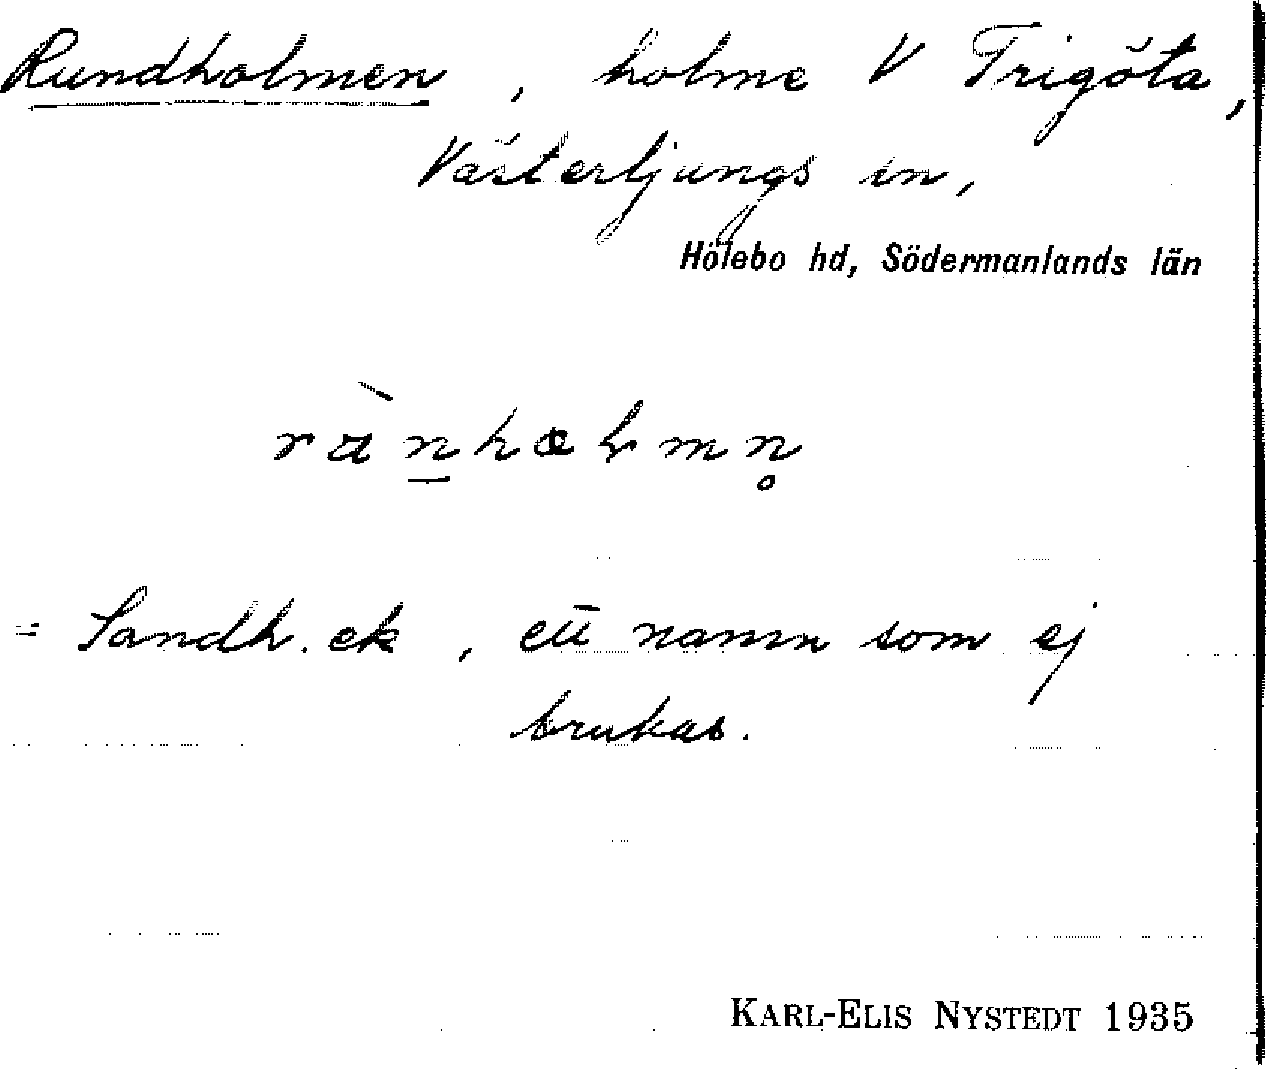 Rundholmen, holme V Trigöta,
Västerljungs sn,
Hölebo hd, Södermanlands län
= Sandh. ek, ett namn som ej
brukas.
KARL-ELIS NYSTEDT 1935